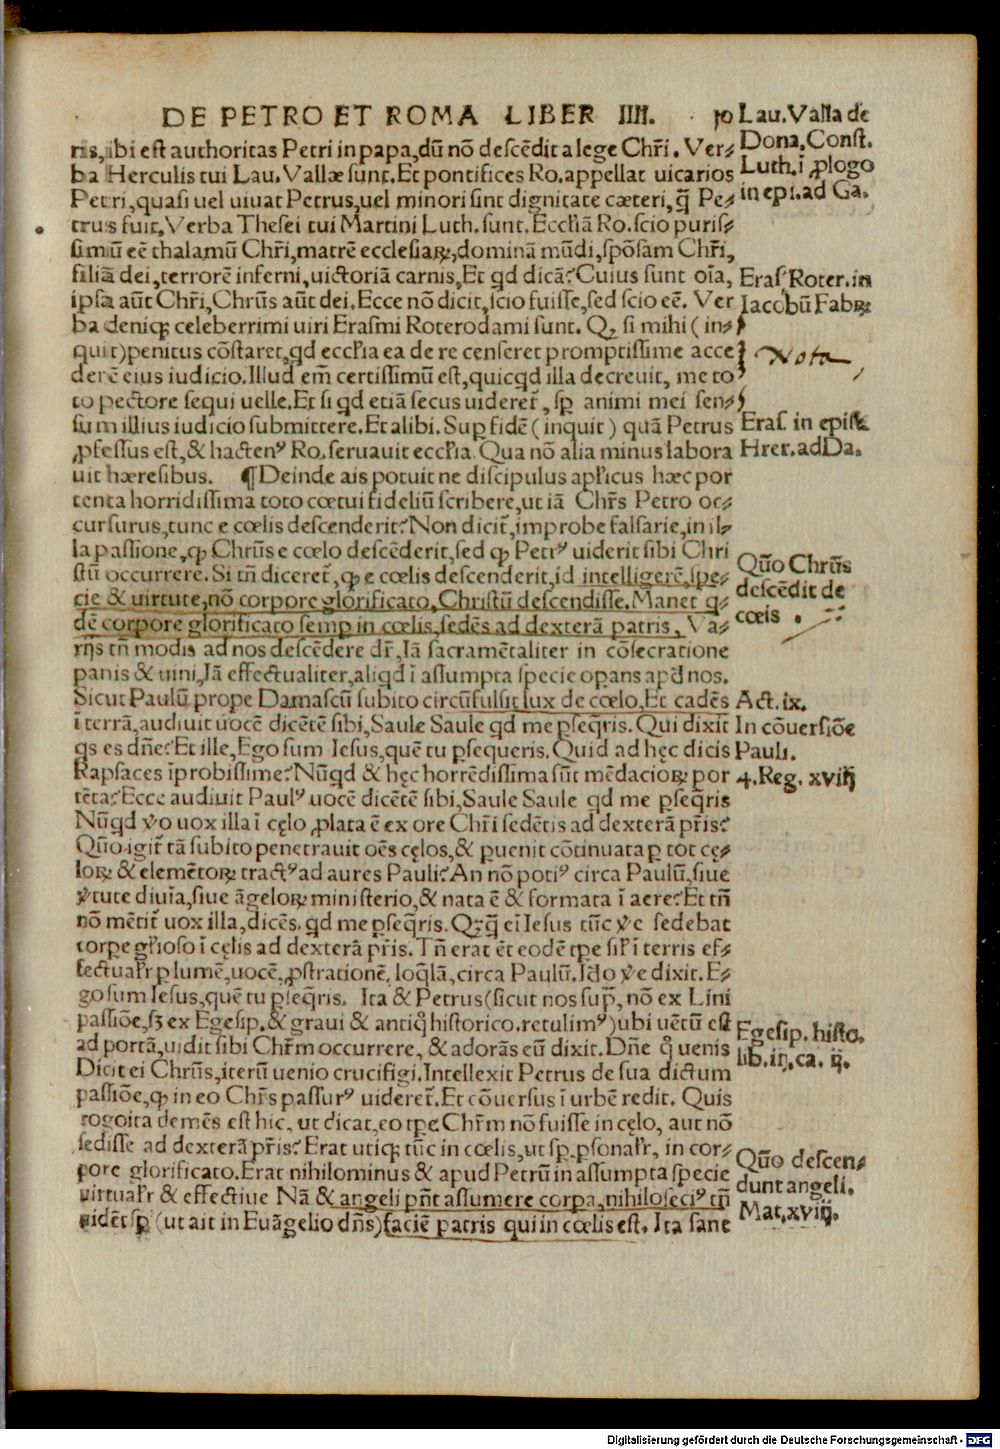 DE PETRO ET ROMA LIBER IIII.
ris, ibi est authoritas Petri in papa, dū nō descēdit a lege Chr̄i. Ver⸗
ba Herculis tui Lau. Vallæ sunt. Et pontifices Ro. appellat uicarios
Petri, quasi uel uiuat Petrus, uel minori sint dignitate cæteri, q̄ Pe⸗
trus fuit. Verba Thesei tui Martini Luth. sunt. Eccl̄iā Ro. scio puris⸗
simū eē thalamū Chr̄i, matrē ecclesiaꝝ, dominā mūdi, spōsam Chr̄i,
filiā dei, terrorē inferni, uictoriā carnis, Et qd dicā? Cuius sunt oīa,
ipsa aūt Chr̄i, Chr̄us aūt dei. Ecce nō dicit, scio fuisse, sed scio eē. Ver
ba deniqꝫ celeberrimi uiri Erasmi Roterodami sunt. Qꝫ si mihi (in⸗
quit) penitus cōstaret, qd eccl̄ia ea de re censeret promptissime acce
derē eius iudicio. Illud em̄ certissimū est, quicqd illa decreuit, me to
to pectore sequi uelle. Et si qd etiā secus uideret̄, sp̄ animi mei sen⸗
sum illius iudicio submittere. Et alibi. Sup fidē (inquit) quā Petrus
ꝓfessus est, & hacten⁹ Ro. seruauit eccl̄ia. Qua nō alia minus labora
uit hæresibus. ¶ Deinde ais potuit ne discipulus apl̄icus hæc por
tenta horridissima toto cœtui fideliū scribere, ut iā Chr̄s Petro oc⸗
cursurus, tunc e cœlis descenderit? Non dicit̄, improbe falsarie, in il⸗
la passione, ꝙ Chr̄us e cœlo descēderit, sed ꝙ Petr⁹ uiderit sibi Chri
stū occurrere. Si tn̄ diceret̄, ꝙ e cœlis descenderit, id intelligerē, spe⸗
cie & uirtute, nō corpore glorificato, Christū descendisse. Manet q⸗
dē corpore glorificato semp in cœlis, sedēs ad dexterā patris, Va⸗
rijs tn̄ modis ad nos descēdere dr̄, Iā sacramētaliter in cōsecratione
panis & uini, Iā effectualiter, aliqd ī assumpta specie opans apd nos.
Sicut Paulū prope Damascū subito circūfulsit lux de cœlo, Et cadēs
ī terrā, audiuit uocē dicētē sibi, Saule Saule qd me pseq̄ris. Qui dixit
qs es dn̄e? Et ille, Ego sum Iesus, quē tu psequeris. Quid ad hęc dicis
Rapsaces īprobissime? Nūqd & hęc horrēdissima sūt mēdacioꝝ por
tēta? Ecce audiuit Paul⁹ uocē dicētē sibi, Saule Saule qd me pseq̄ris
Nūqd v̓o uox illa ī cęlo ꝓlata ē ex ore Chr̄i sedētis ad dexterā pr̄is?
Quō igit̄ tā subito penetrauit oēs cęlos, & puenit cōtinuata p tot cę⸗
loꝝ & elemētoꝝ tract⁹ ad aures Pauli? An nō poti⁹ circa Paulū, siue
v̓tute diuīa, siue āgeloꝝ ministerio, & nata ē & formata ī aere? Et tn̄
nō mētit̄ uox illa, dicēs, qd me pseq̄ris. Qꝫq̄ eī Iesus tūc v̓e sedebat
corpe gl̄ioso ī cęlis ad dexterā pr̄is. Tn̄ erat ēt eodē tpe sil̓ ī terris ef⸗
fectual̓r p lumē, uocē, ꝓstrationē, loq̄lā, circa Paulū. Ido v̓e dixit. E⸗
go sum Iesus, quē tu pseq̄ris. Ita & Petrus (sicut nos sup̄, nō ex Lini
passiōe, sꝫ ex Egesip. & graui & antiq̊ historico. retulim⁹) ubi uētū est
ad portā, uidit sibi Chr̄m occurrere, & adorās eū dixit. Dn̄e q̊ uenis
Dicit ei Chr̄us, iterū uenio crucifigi. Intellexit Petrus de sua dictum
passiōe, ꝙ in eo Chr̄s passur⁹ uideret̄. Et cōuersus ī urbē redit. Quis
rogo ita demēs est hic, ut dicat, eo tpe Chr̄m nō fuisse in cęlo, aut nō
sedisse ad dexterā pr̄is? Erat utiqꝫ tūc in cœlis, ut sp̄, psonal̓r, in cor⸗
pore glorificato. Erat nihilominus & apud Petrū in assumpta specie
uirtual̓r & effectiue Nā & angeli pn̄t assumere corpa, nihilo seci⁹ tn̄
uidēt sp̄ (ut ait in Euāgelio dn̄s) faciē patris qui in cœlis est. Ita sane
Lau. Valla de
Dona. Const.
Luth. ī ꝓlogo
in epi. ad Ga.
Eras. Roter. in
Iacobū Fabꝝ
Nota
Eras. in epist.
Hier. ad Da.
Quō Chr̄us
descēdit de
cœlis
Act. ix.
In cōuersiōe
Pauli.
4. Reg. xviij
Egesip. histo.
lib. iij. ca. ij.
Quō descen⸗
dunt angeli.
Mat. xviij.
Digitalisierung gefördert durch die Deutsche Forschungsgemeinschaft - DFG